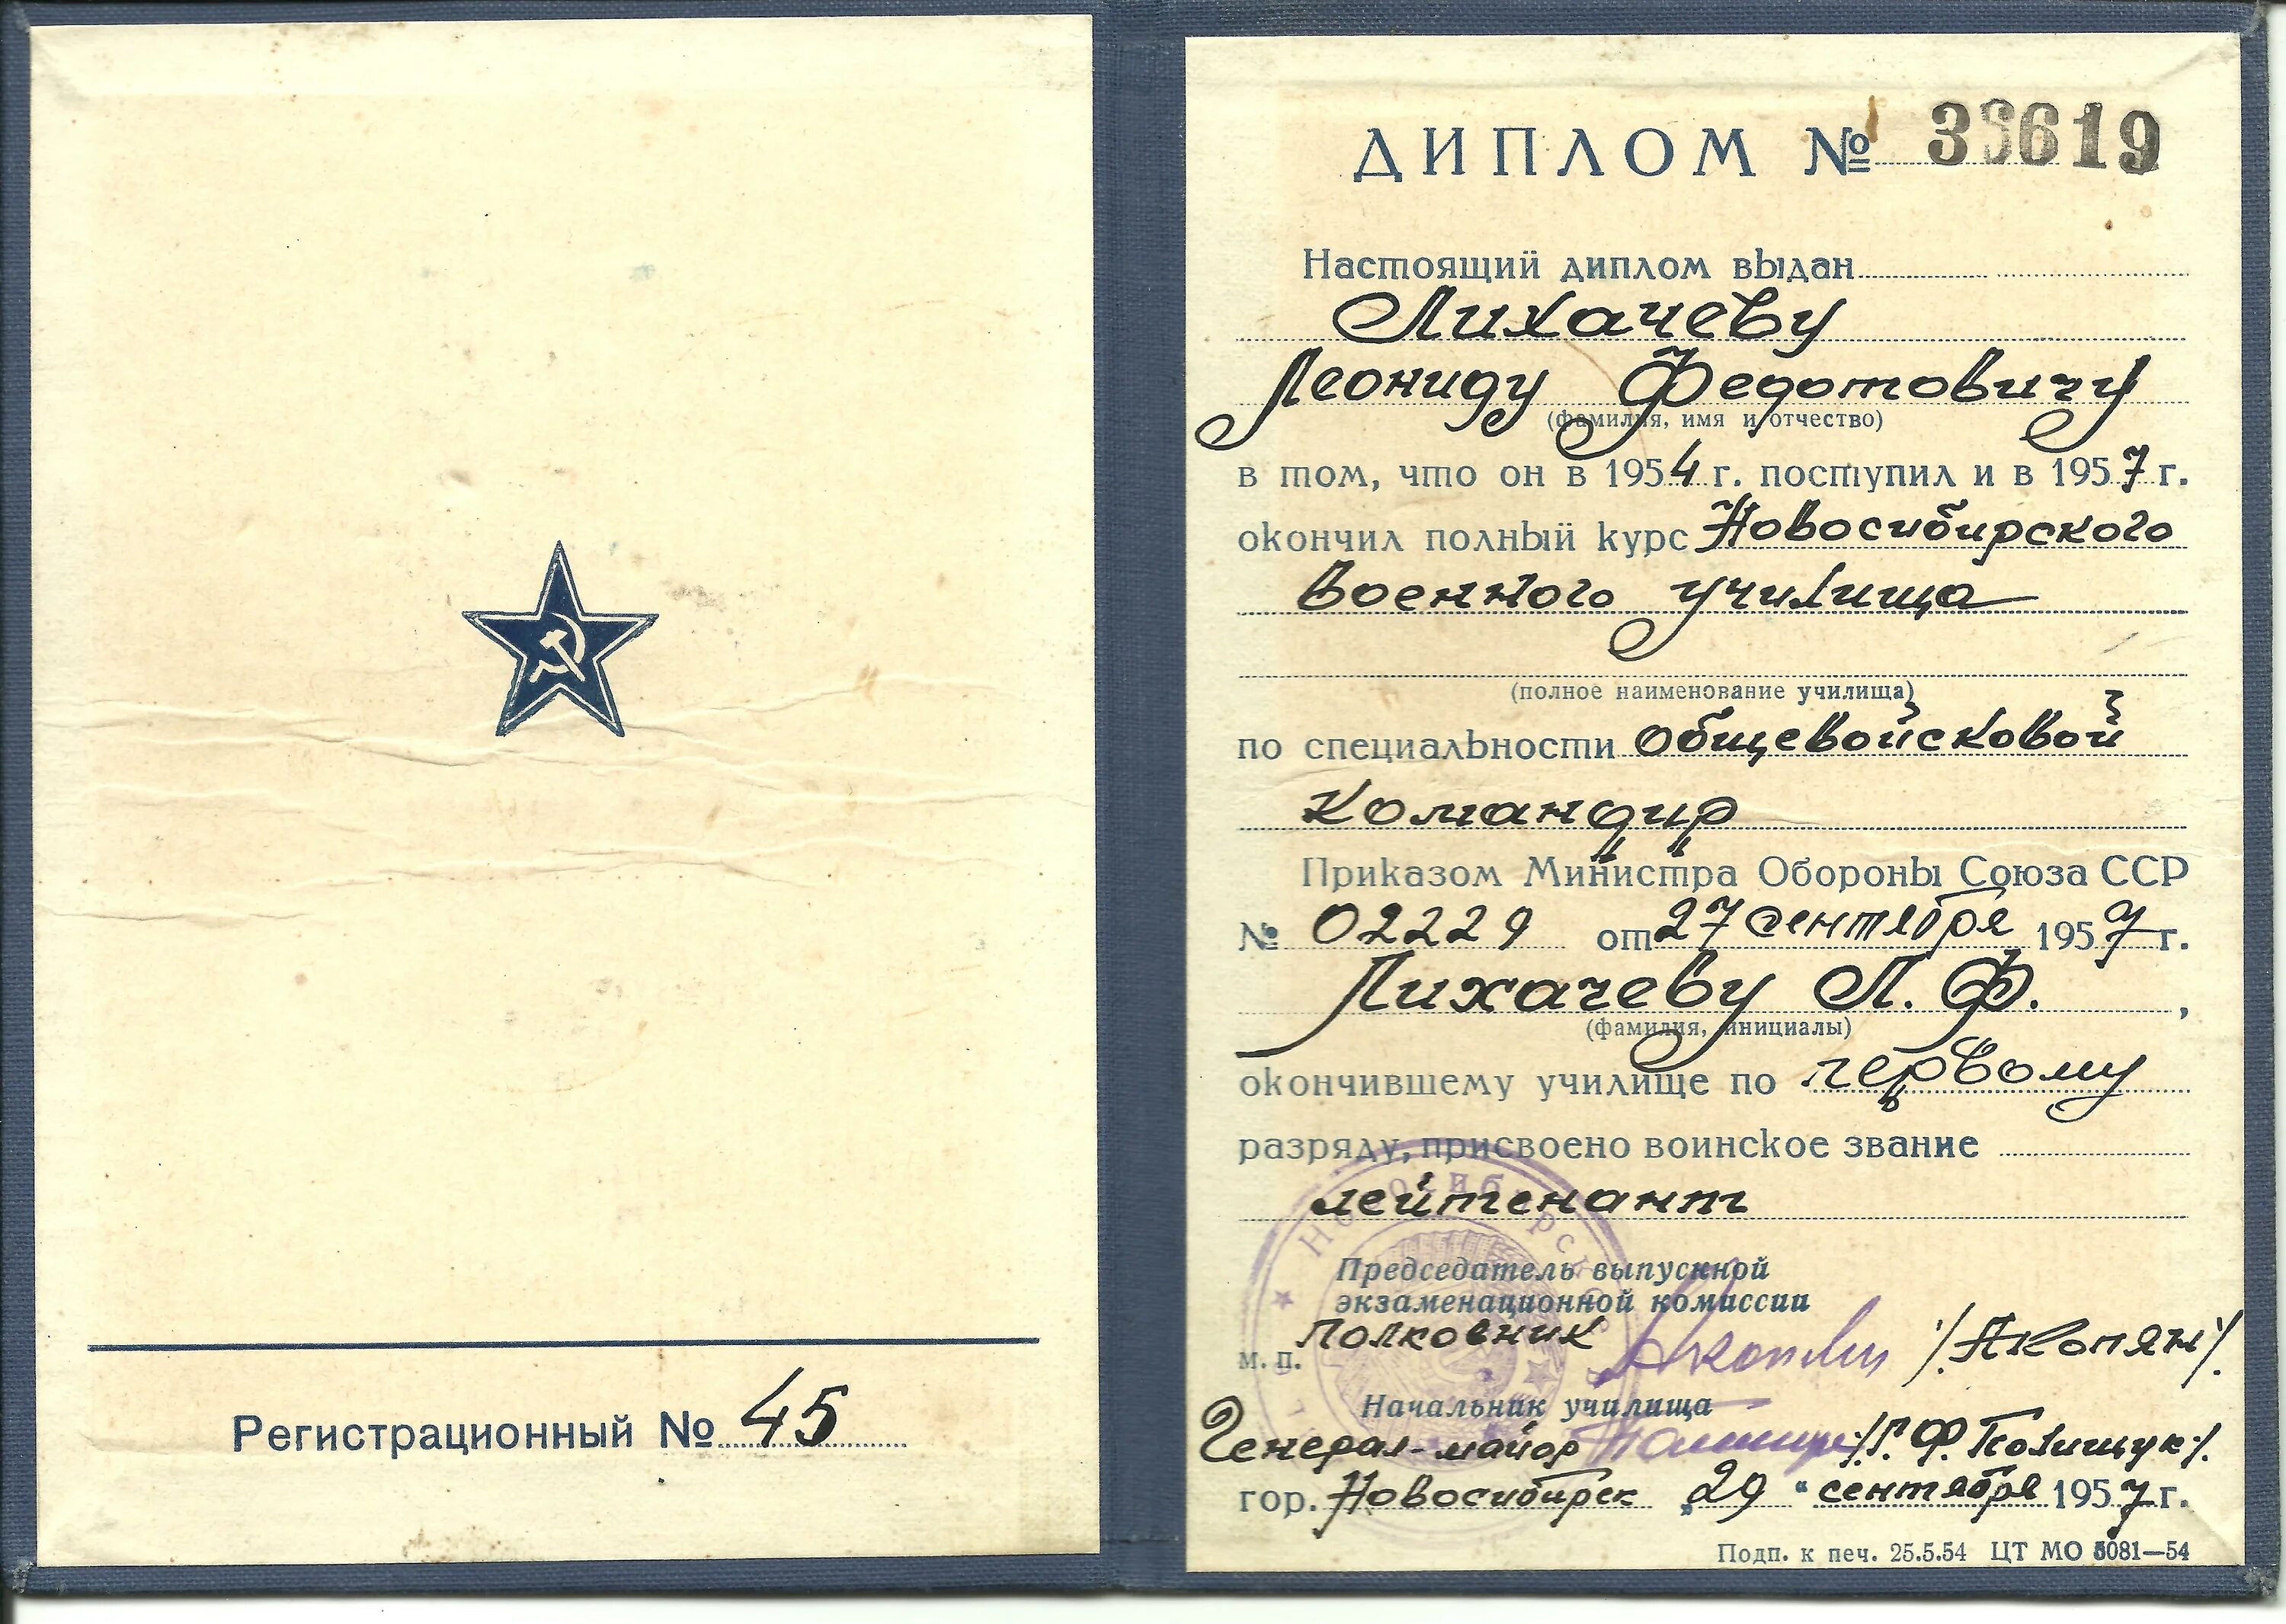 Регистрационный № 45
ДИПЛОМ № 36619
Настоящий диплом выдан
Лихачеву
Леониду Федотовичу
(фамилия, имя и отчество)
в том, что он в 1954 г. поступил и в 1957 г.
окончил полный курс Новосибирского
Военного училища
(полное наименование училища)
по специальности общевойсковой
командир
Приказом Министра Обороны Союза ССР
№ 02229 от 27 сентября 1957 г.
Лихачеву Л. Ф.,
(фамилия, инициалы)
окончившему училище по первому
разряду, присвоено воинское звание
лейтенант
Председатель выпускной
экзаменационной комиссии
полковник /Акопян/.
м. п.
Начальник училища
Генерал-майор /Г. Ф. Полищук/.
гор. Новосибирск „29" сентября 1957 г.
Подп. к печ. 25.5.54 ЦТ МО 5081—54